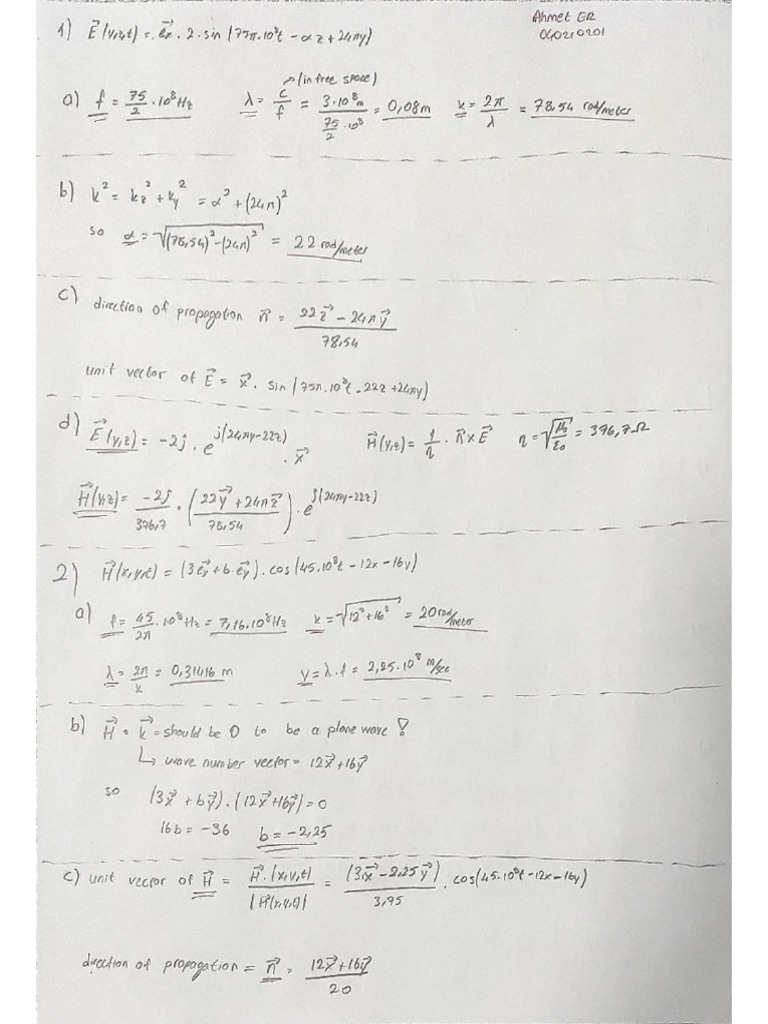 Ahmet ER
040210201
1) E⃗(y,z,t) = e⃗x . 2 . sin(75π.10⁸t - αz + 24πy)
a) f = 75/2 . 10⁸ Hz λ = c/f (in free space) = 3.10⁸m / (75/2 . 10⁸) = 0,08m k = 2π/λ = 78,54 rad/meter
b) k² = kz² + ky² = α² + (24π)²
so α = √((78,54)² - (24π)²) = 22 rad/meter
c) direction of propagation n⃗ = (22z⃗ - 24πy⃗) / 78,54
unit vector of E⃗ = x⃗ . sin(75π.10⁸t - 22z + 24πy)
d) E⃗(y,z) = -2j . e^j(24πy-22z) . x⃗ H⃗(y,z) = 1/η . n⃗ x E⃗ η = √(μ₀/ε₀) = 376,7Ω
H⃗(y,z) = -2j/376,7 . ((22y⃗ + 24πz⃗) / 78,54) . e^j(24πy-22z)
2) H⃗(x,y,t) = (3e⃗y + b.e⃗y) . cos(45.10⁸t - 12x - 16y)
a) f = 45/2π . 10⁸ Hz = 7,16.10⁸Hz k = √(12² + 16²) = 20 rad/meter
λ = 2π/k = 0,31416 m v = λ.f = 2,25.10⁸ m/sec
b) H⃗ • k⃗ = should be 0 to be a plane wave !
↳ wave number vector = 12x⃗ + 16y⃗
so (3x⃗ + by⃗) . (12x⃗ + 16y⃗) = 0
16b = -36 b = -2,25
c) unit vector of H⃗ = H⃗.(x,y,t) / |H⃗(x,y,t)| = (3x⃗ - 2,25y⃗) / 3,75 . cos(45.10⁸t - 12x - 16y)
direction of propagation = n⃗ = (12x⃗ + 16y⃗) / 20